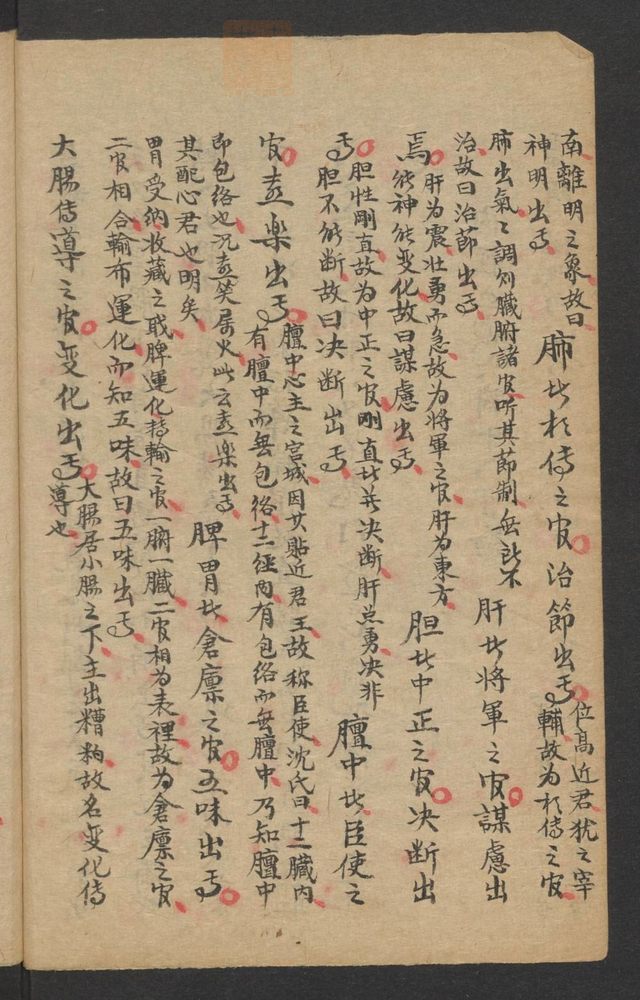 南離明之象故曰
神明出焉
肺者相傅之官治節出焉
位高近君犹之宰
輔故为相傅之官
肺出氣々調则臟腑諸官听其節制無所不
治故曰治節出焉
肝者將軍之官謀慮出
焉
肝为震壮勇而急故为將軍之官肝为東方
能神能变化故曰謀慮出焉
胆者中正之官决断出
焉
胆性剛直故为中正之官剛直者并决断肝虽勇决非
胆不能断故曰决断出焉
膻中者臣使之
官喜樂出焉
膻中心主之宫城因其貼近君王故称臣使沈氏曰十二臟内
有膻中而無包络十二经内有包络而無膻中乃知膻中
即包络也况喜笑属火此云喜樂出焉
其配心君也明矣
脾胃者倉廪之官五味出焉
胃受納收藏之职脾運化转輸之官一腑一臟二官相为表裡故为倉廪之官
二官相合輸布運化而知五味故曰五味出焉
大腸传導之官变化出焉
大腸居小腸之下主出糟粕故名变化传
導也